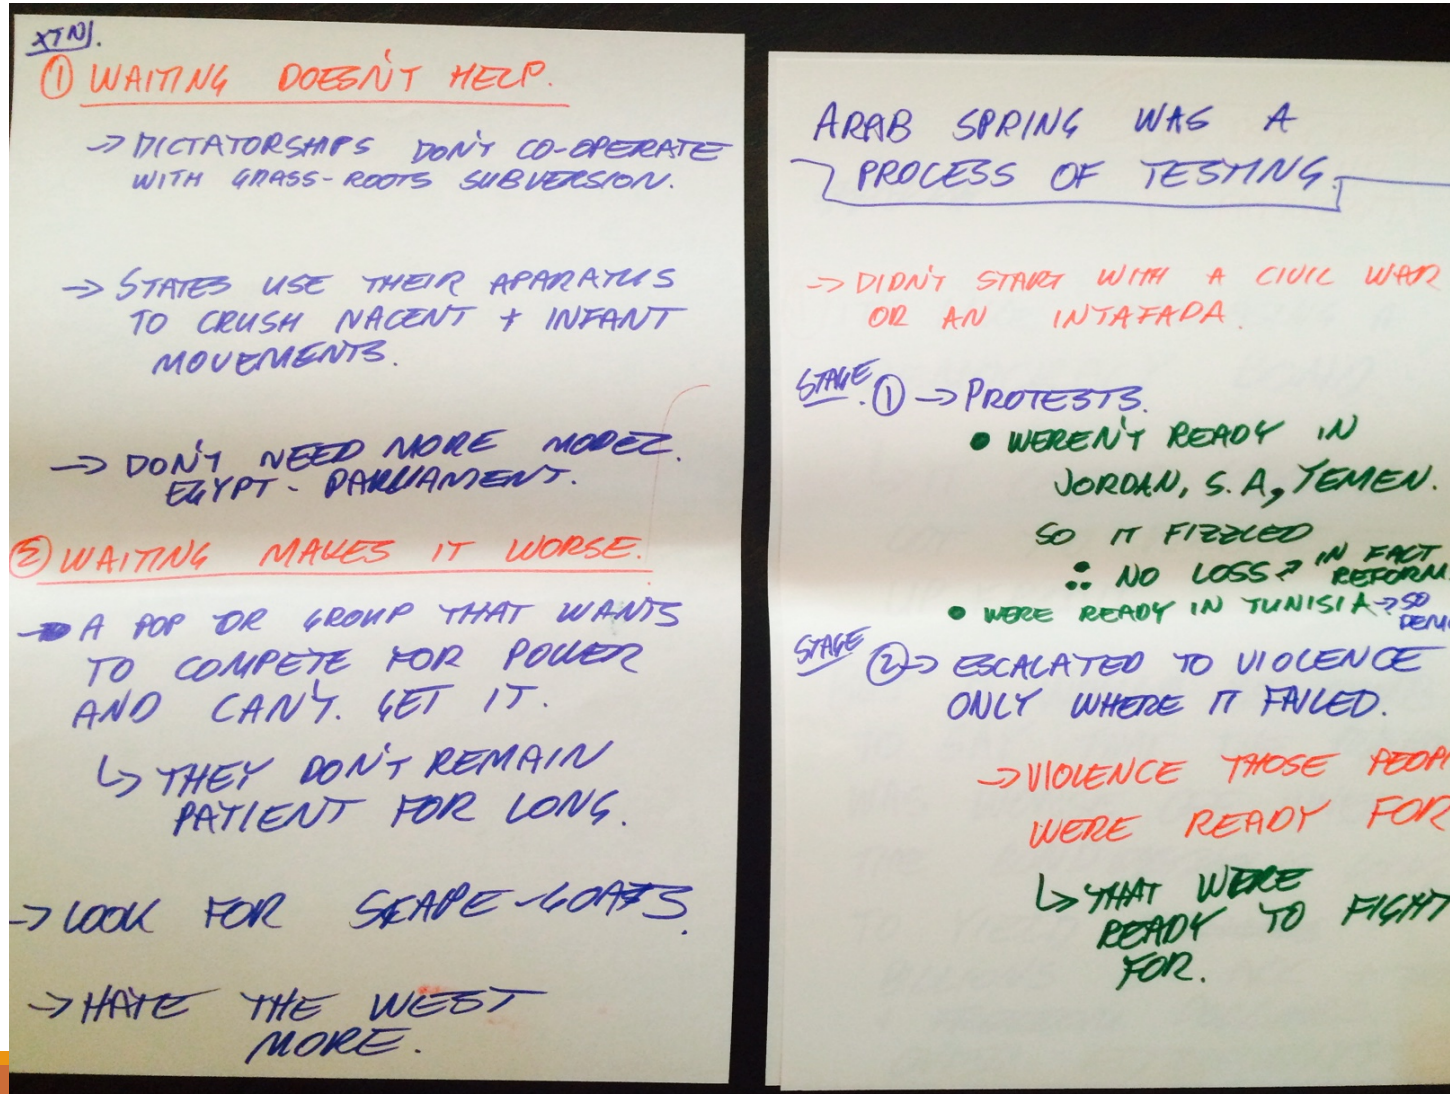 XTN).
① WAITING DOESN'T HELP.
→ DICTATORSHIPS DON'T CO-OPERATE
WITH GRASS-ROOTS SUBVERSION.
→ STATES USE THEIR APARATUS
TO CRUSH NACENT + INFANT
MOVEMENTS.
→ DON'T NEED MORE
EGYPT - PARLIAMENT.
② WAITING MAKES IT WORSE.
→ A POP OR GROUP THAT WANTS
TO COMPETE FOR POWER
AND CAN'T. GET IT.
↳ THEY DON'T REMAIN
PATIENT FOR LONG.
→ LOOK FOR SCAPE-GOATS.
→ HATE THE WEST
MORE.
ARAB SPRING WAS A
PROCESS OF TESTING.
→ DIDN'T START WITH A CIVIL WAR
OR AN INTAFADA.
STAGE ① → PROTESTS.
• WEREN'T READY IN
JORDAN, S.A, YEMEN.
SO IT FIZZLED
∴ NO LOSS → IN FACT
REFORM
• WERE READY IN TUNISIA → SO
DEMO
STAGE ② → ESCALATED TO VIOLENCE
ONLY WHERE IT FAILED.
→ VIOLENCE THOSE PEOP
WERE READY FOR
↳ THAT WERE
READY TO FIGHT
FOR.